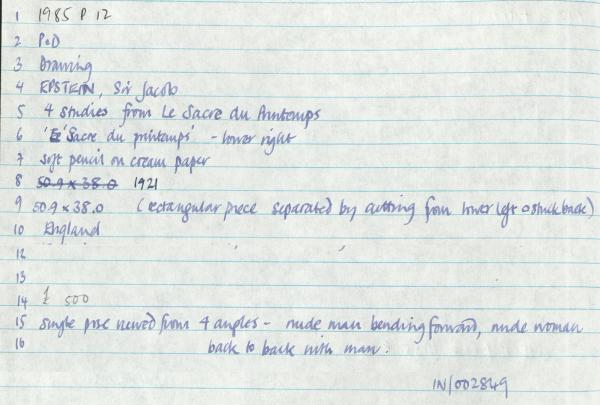 1 1985 P 12
2 P&D
3 Drawing
4 EPSTEIN, Sir Jacob
5 4 studies from Le Sacre du Printemps
6 'Sacre du printemps' - lower right
7 soft pencil on cream paper
8 50.9 x 38.0 1921
9 50.9 x 38.0 (rectangular piece separated by cutting from lower left & stuck back)
10 England
12
13
14 £ 500
15 single pose viewed from 4 angles - nude man bending forward, nude woman
16 back to back with man.
IN/002849